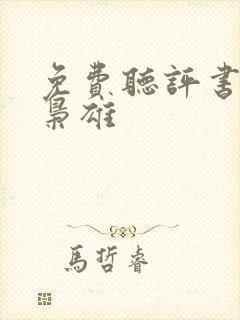 免費聽評書
梟雄
馬哲睿